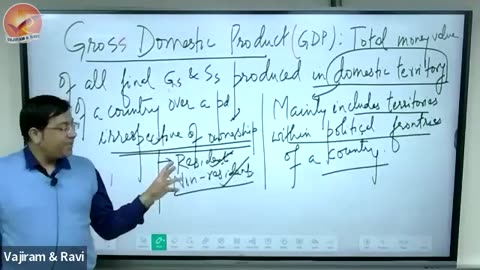 VAJIRAM & RAVI
Gross Domestic Product (GDP): Total money value
of all final Gs & Ss produced in domestic territory
of a country over a pd
irrespective of ownership
Resident
Non-residents
Mainly includes territories
within political frontiers
of a country.
Vajiram & Ravi